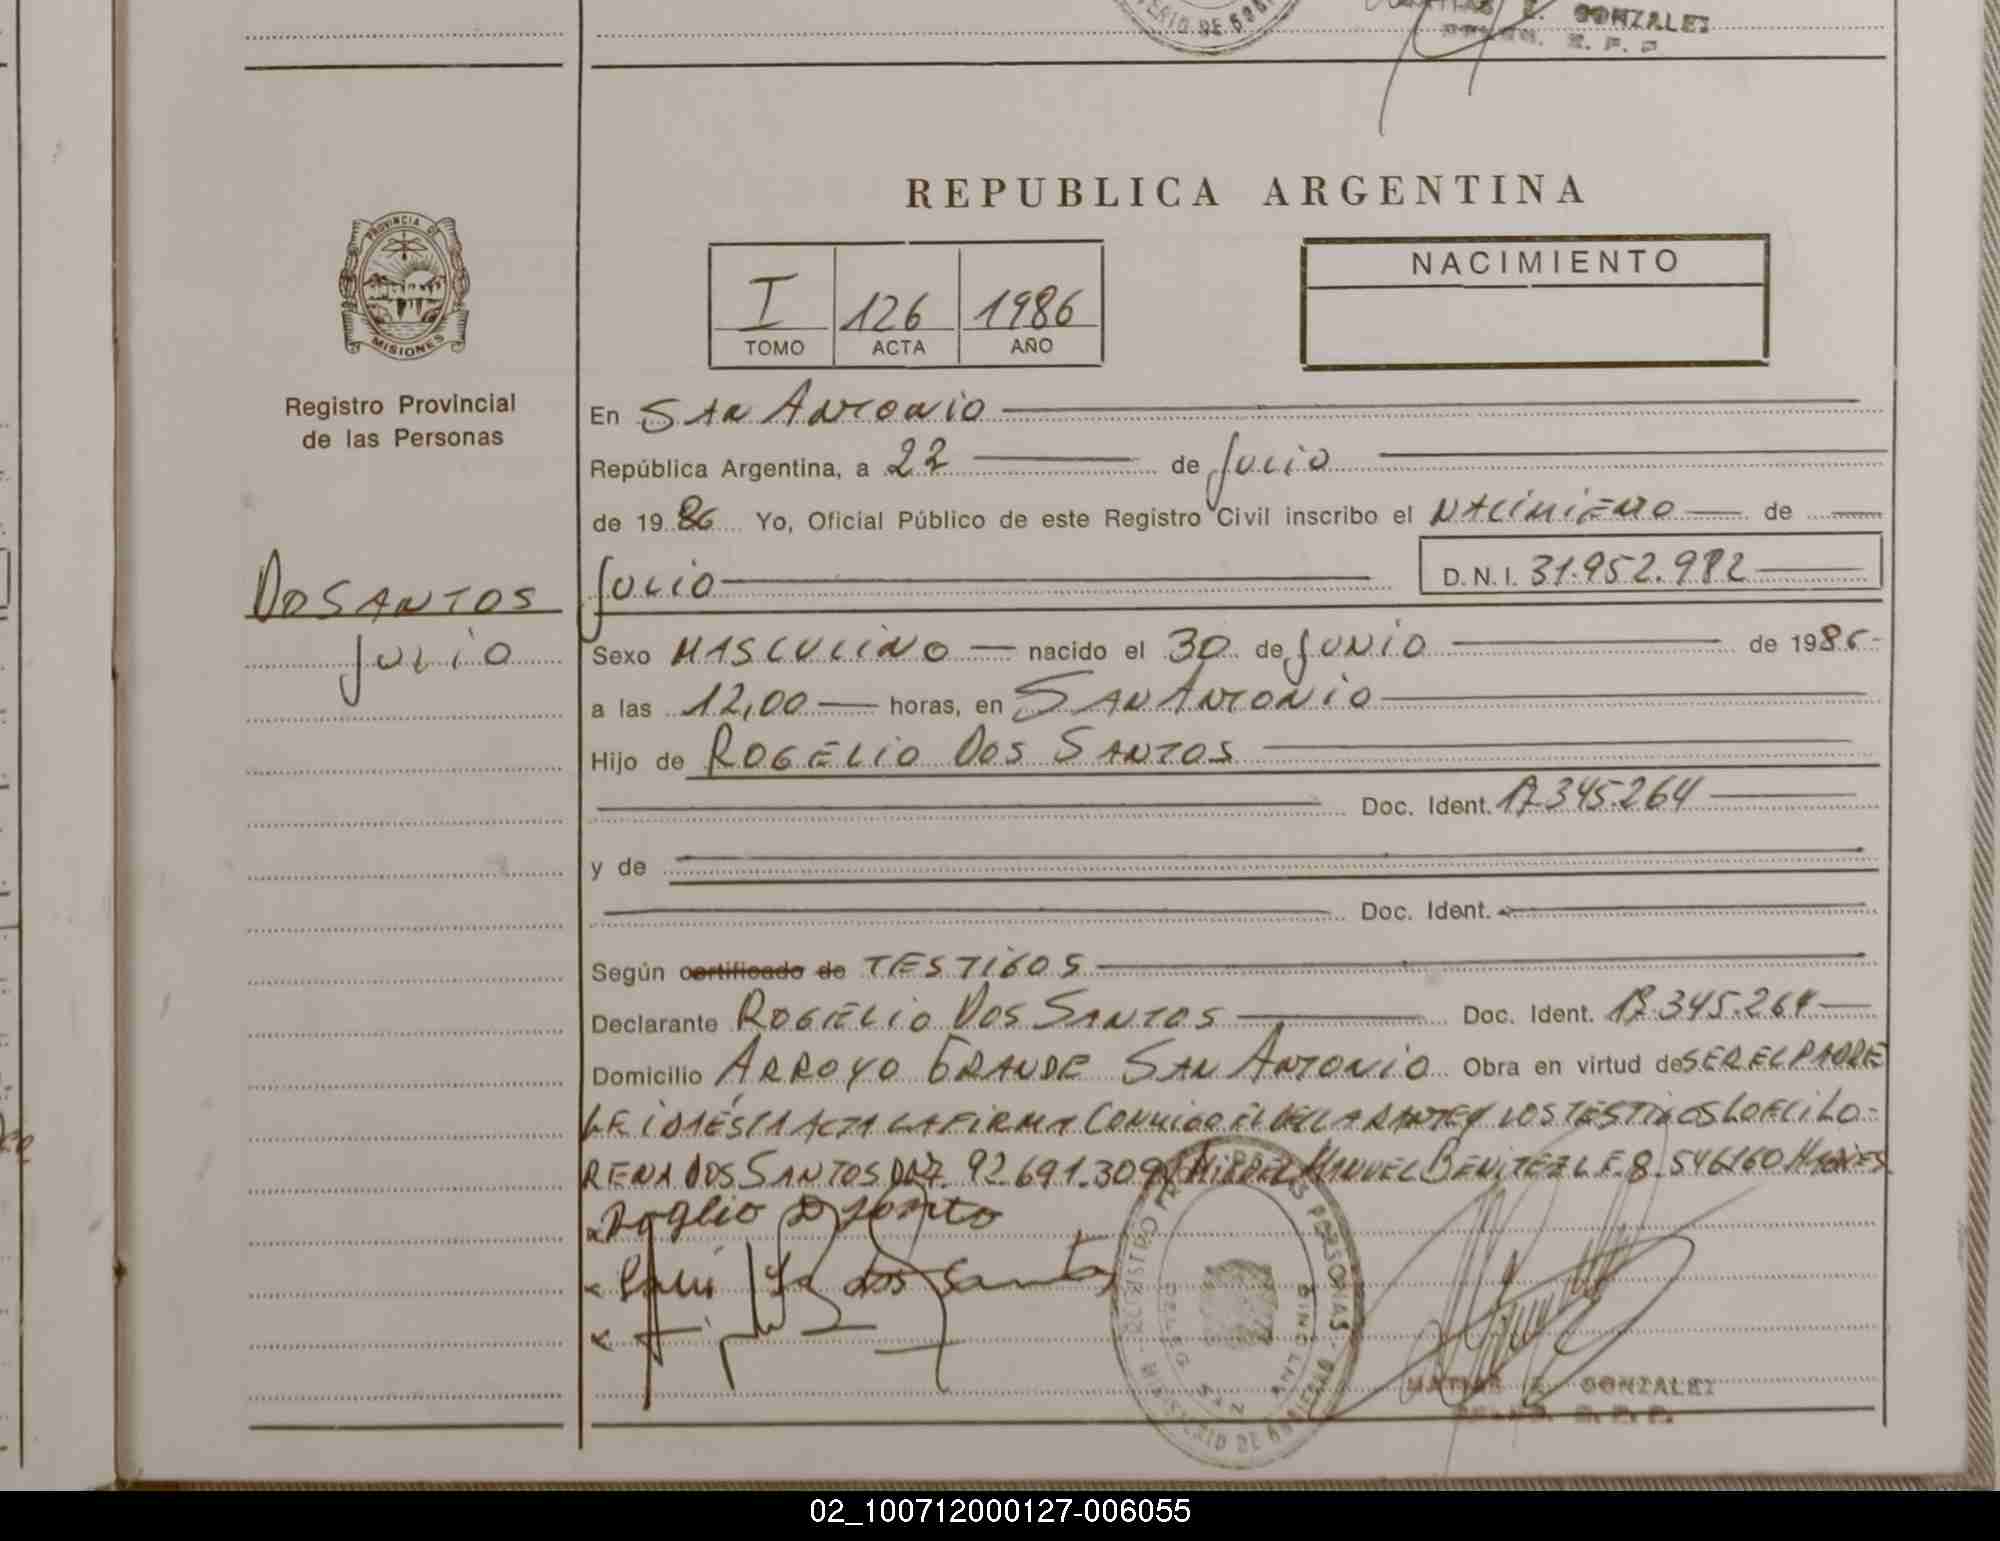 GONZALEZ
REPUBLICA ARGENTINA
PROVINCIA DE
MISIONES
Registro Provincial
de las Personas
I 126 1986
TOMO ACTA AÑO
NACIMIENTO
DOSANTOS
Julio
En SAN ANTONIO
República Argentina, a 22 de Julio
de 1986 Yo, Oficial Público de este Registro Civil inscribo el NACIMIENTO de
Julio D.N.I. 31.952.982
Sexo MASCULINO nacido el 30 de JUNIO de 1986
a las 12,00 horas, en SAN ANTONIO
Hijo de ROGELIO DOS SANTOS
Doc. Ident. 17.345.264
y de
Doc. Ident.
Según certificado de TESTIGOS
Declarante ROGELIO DOS SANTOS Doc. Ident. 17.345.264
Domicilio ARROYO GRANDE SAN ANTONIO Obra en virtud de SER EL PADRE
LEIDA ESTA ACTA LA FIRMA CONMIGO EL DECLARANTE Y LOS TESTIGOS
RENA DOS SANTOS DNI. 92.691.309 Y MIGUEL MANUEL BENITEZ L.E. 8.546160
dos Santos
MATIAS E. GONZALEZ
02_100712000127-006055